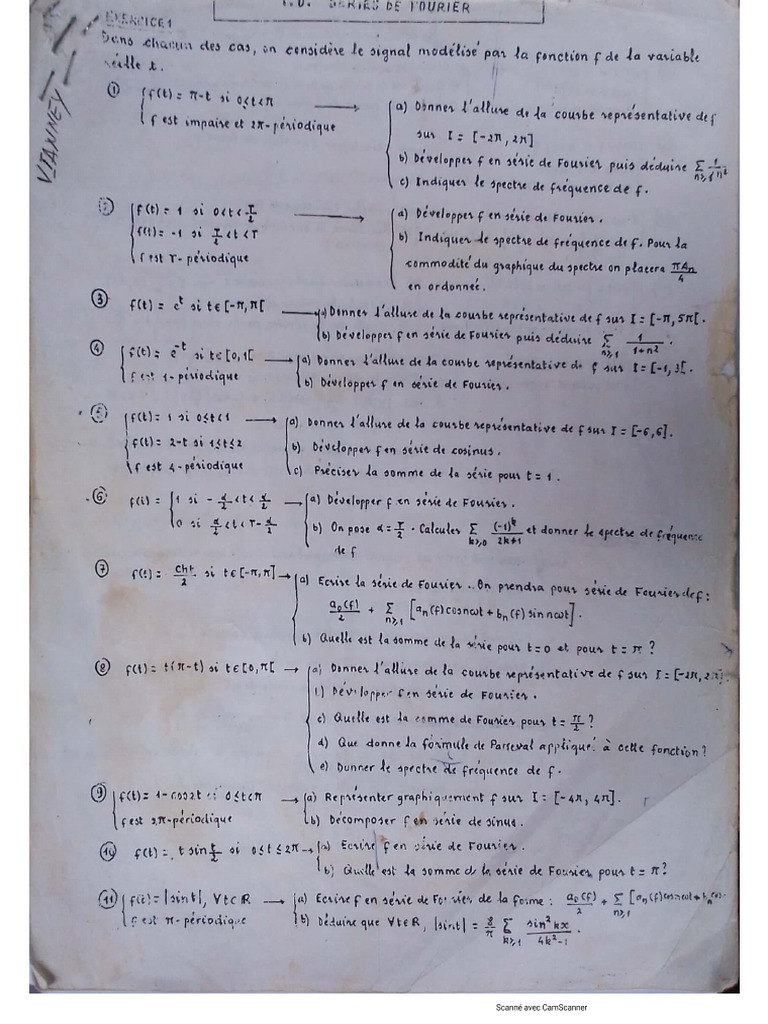 T.D. SERIES DE FOURIER
EXERCICE 1
Dans chacun des cas, on considère le signal modélisé par la fonction f de la variable
réelle t.
VIANNEY
① { f(t) = π-t si 0≤t<π
f est impaire et 2π-périodique
a) Donner l'allure de la courbe représentative de f
sur I = [-2π, 2π]
b) Développer f en série de Fourier puis déduire Σ n≥1 1/n²
c) Indiquer le spectre de fréquence de f.
② { f(t) = 1 si 0<t<T/2
f(t) = -1 si T/2<t<T
f est T-périodique
a) Développer f en série de Fourier.
b) Indiquer le spectre de fréquence de f. Pour la
commodité du graphique du spectre on placera πAn/4
en ordonnée.
③ f(t) = e^t si t∈[-π,π[ → a) Donner l'allure de la courbe représentative de f sur I = [-π, 5π[.
b) Développer f en série de Fourier puis déduire Σ n≥1 1/(1+n²).
④ { f(t) = e^-t si t∈[0,1[ → a) Donner l'allure de la courbe représentative de f sur I = [-1, 3[.
f est 1-périodique
b) Développer f en série de Fourier.
⑤ { f(t) = 1 si 0≤t<1 → a) Donner l'allure de la courbe représentative de f sur I = [-6,6].
f(t) = 2-t si 1≤t≤2
b) Développer f en série de cosinus.
f est 4-périodique
c) Préciser la somme de la série pour t = 1.
⑥ f(t) = { 1 si -α/2<t<α/2 → a) Développer f en série de Fourier.
0 si α/2<t<T-α/2
b) On pose α = T/2. Calculer Σ k≥0 (-1)^k/(2k+1) et donner le spectre de fréquence
de f
⑦ f(t) = cht/2 si t∈[-π,π] → a) Ecrire la série de Fourier. On prendra pour série de Fourier de f :
a₀(f)/2 + Σ n≥1 [an(f) cosnωt + bn(f) sinnωt].
b) Quelle est la somme de la série pour t=0 et pour t=π ?
⑧ f(t) = t(π-t) si t∈[0,π[ → a) Donner l'allure de la courbe représentative de f sur I = [-2π, 2π].
b) Développer f en série de Fourier.
c) Quelle est la somme de Fourier pour t = π/2 ?
d) Que donne la formule de Parseval appliqué à cette fonction ?
e) Donner le spectre de fréquence de f.
⑨ { f(t) = 1-cos2t si 0≤t<π → a) Représenter graphiquement f sur I = [-4π, 4π].
f est 2π-périodique
b) Décomposer f en série de sinus.
⑩ f(t) = t sin t/2 si 0≤t≤2π → a) Ecrire f en série de Fourier.
b) Quelle est la somme de la série de Fourier pour t=π ?
⑪ { f(t) = |sint|, ∀t∈R → a) Ecrire f en série de Fourier de la forme : a₀(f)/2 + Σ n≥1 [an(f)cosnωt + bn
f est π-périodique
b) Déduire que ∀t∈R, |sint| = 8/π Σ k≥1 sin²kx/(4k²-1).
Scanné avec CamScanner